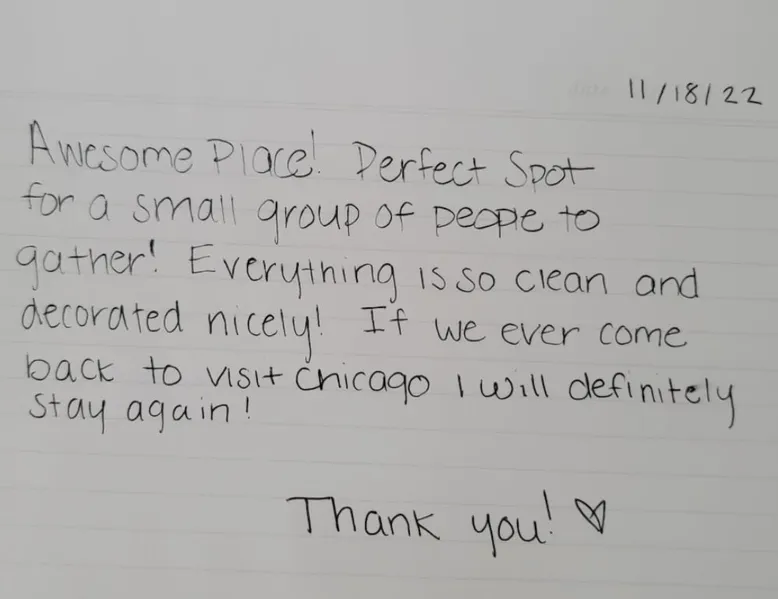 11/18/22
Awesome Place! Perfect Spot
for a small group of people to
gather! Everything is so clean and
decorated nicely! If we ever come
back to visit Chicago I will definitely
stay again!
Thank you! ♡